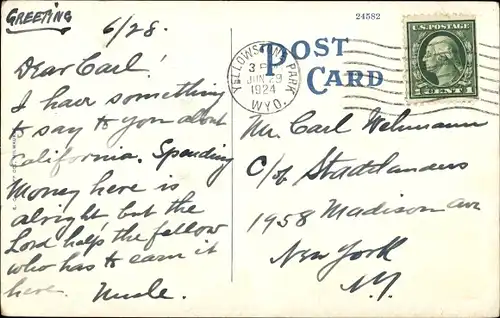 GREETING
6/28.
24582
Dear Carl!
I have something
to say to you about
California. Spending
Money here is
alright but the
Lord helps the fellow
who has to earn it
here. Uncle.
POST
CARD
YELLOWSTONE PARK
3 P
JUN 29
1924
WYO.
U.S. POSTAGE
Mr. Carl Wehmann
c/o Stadtlanders
1958 Madison Av
New York
N.Y.